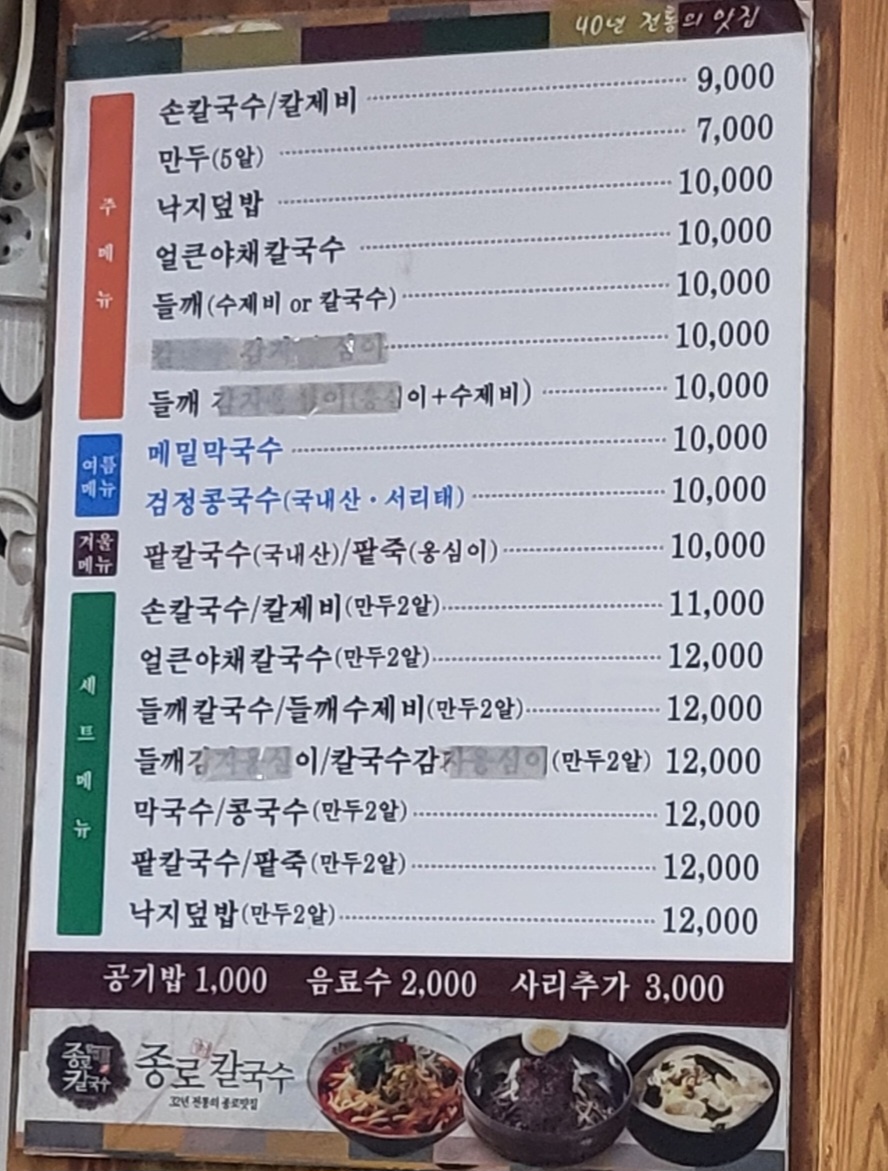 40년 전통의 맛집
주메뉴
손칼국수/칼제비 9,000
만두(5알) 7,000
낙지덮밥 10,000
얼큰야채칼국수 10,000
들깨(수제비 or 칼국수) 10,000
10,000
들깨 이+수제비) 10,000
여름메뉴
메밀막국수 10,000
검정콩국수(국내산·서리태) 10,000
겨울메뉴
팥칼국수(국내산)/팥죽(옹심이) 10,000
세트메뉴
손칼국수/칼제비(만두2알) 11,000
얼큰야채칼국수(만두2알) 12,000
들깨칼국수/들깨수제비(만두2알) 12,000
들깨감자옹심이/칼국수감자옹심이(만두2알) 12,000
막국수/콩국수(만두2알) 12,000
팥칼국수/팥죽(만두2알) 12,000
낙지덮밥(만두2알) 12,000
공기밥 1,000 음료수 2,000 사리추가 3,000
종로칼국수
종로칼국수
32년 전통의 종로맛집